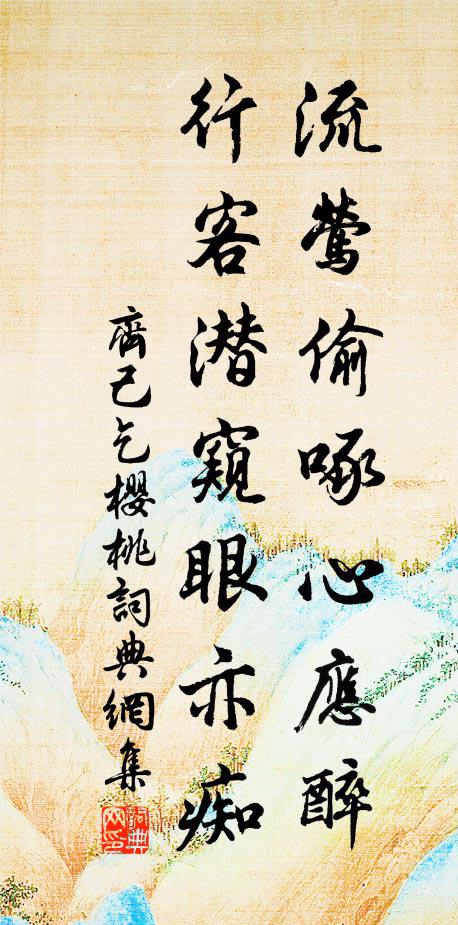 流鶯偷啄心應醉
行客潜窺眼亦痴
齊己乞櫻桃詞典網集
詞典網印